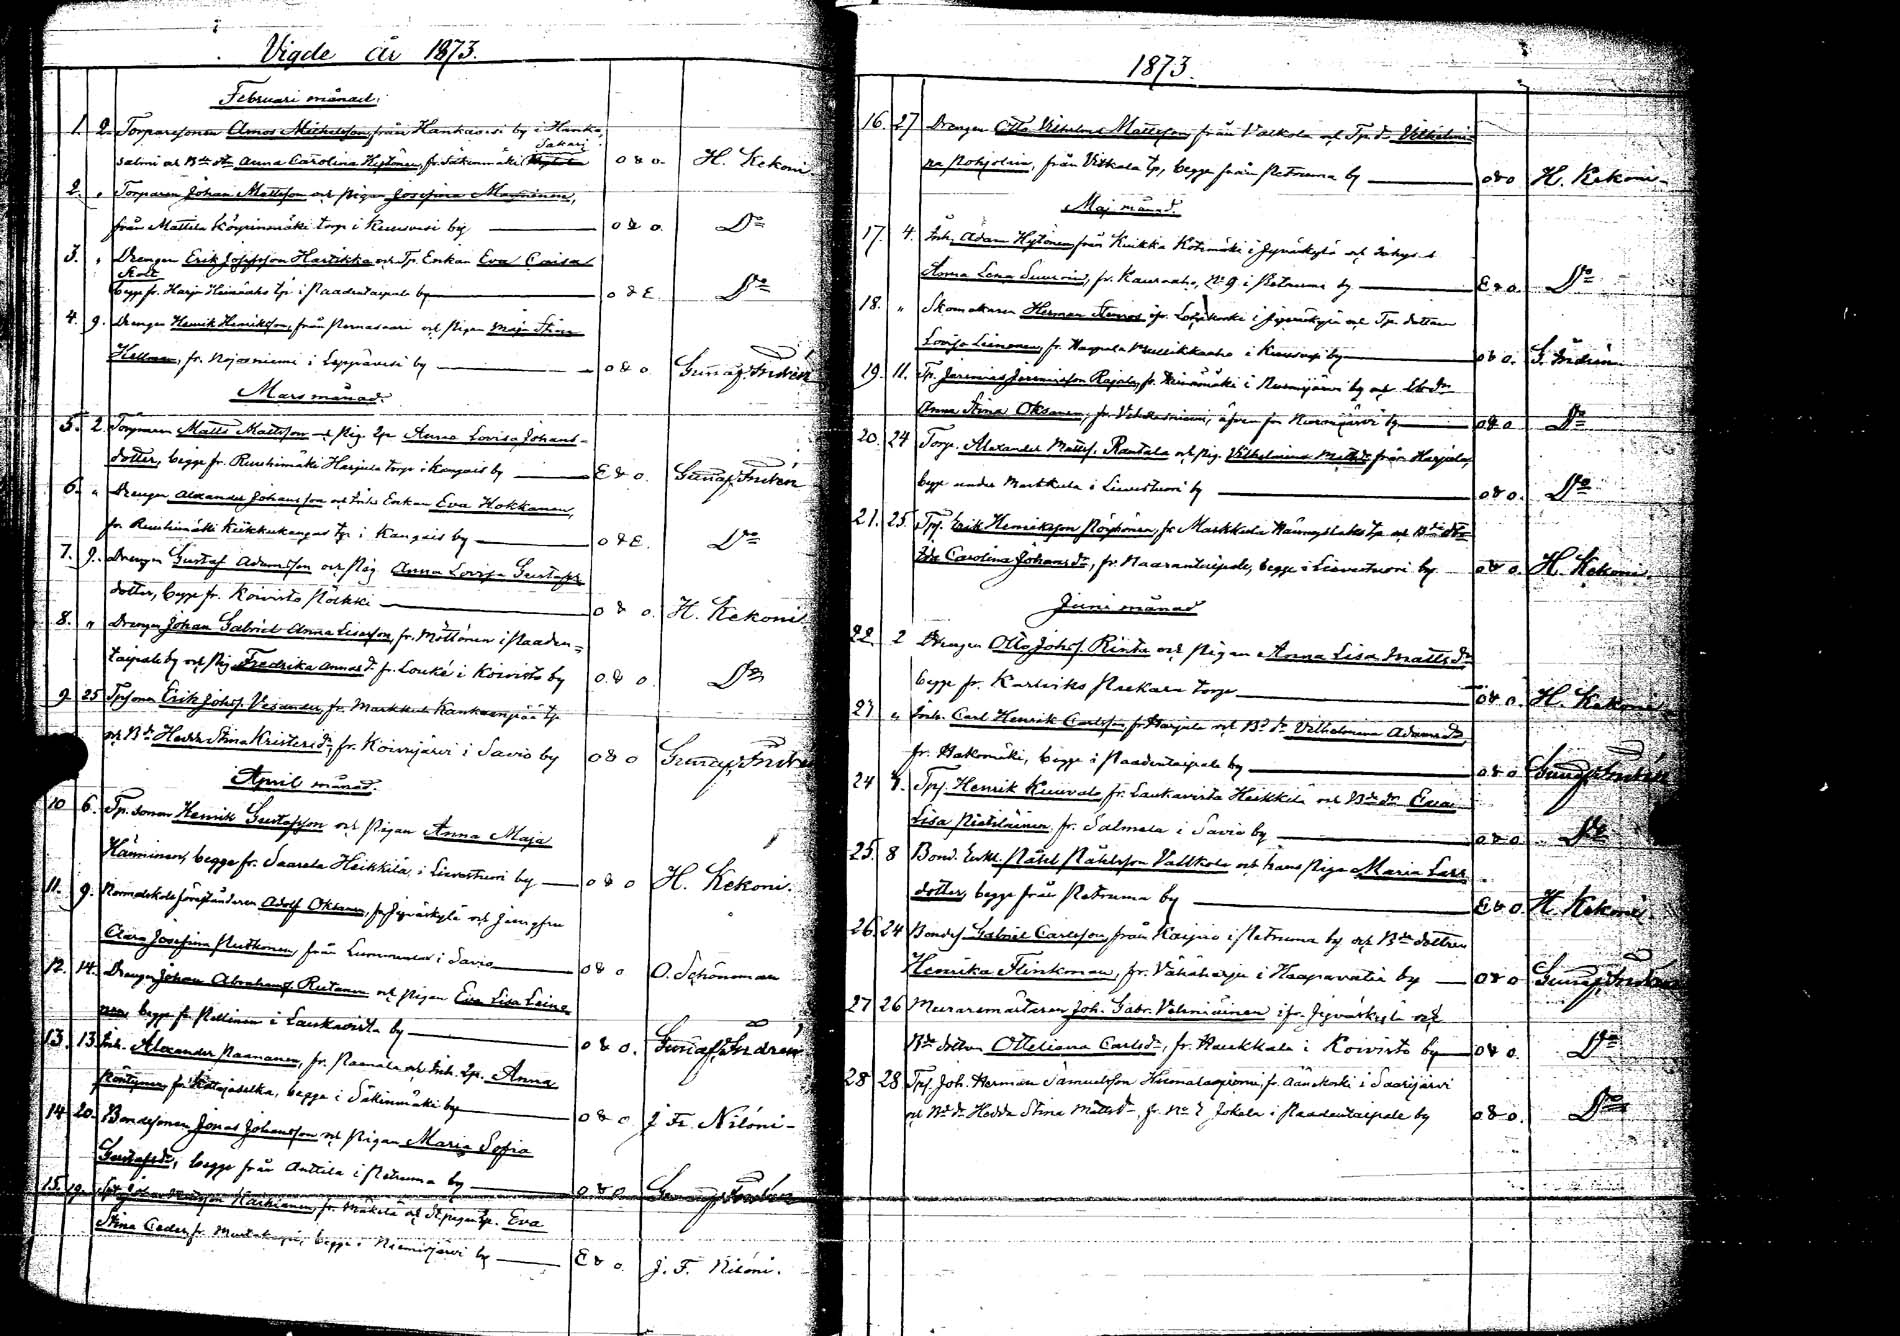 Vigde år 1873.
Februari månad.
1. 2. Torparesonen Amos Michelsson, från Hankavesi by i Hanka-
salmi och Bde dtr Anna Carolina Hytönen, fr. Sätkinmäki Sakari o & o. H. Kekoni.
2. " Torparen Johan Mattsson och Pigan Josefina Manninen,
från Mattila Köyrinmäki torp i Kuusvesi by o & o. Do
3. " Drengen Erik Josefsson Hartikka och Tp. Enkan Eva Caisa
begge fr. Harju Heinäaho tp. i Raadentaipale by o & E. Do
4. 9. Drengen Henrik Henriksson, från Pernasaari och Pigan Maja Stina
Hellman, fr. Nojosniemi i Leppävesi by o & o. Gustaf Indrén
Mars månad.
5. 2. Torparen Matts Mattsson och Pig. Anna Lovisa Johans-
dotter, begge fr. Ruuhimäki Harjula torp i Kangais by E & o. Gustaf Indrén
6. " Drengen Alexander Johansson och Inh. Enkan Eva Hokkanen,
fr. Ruuhimäki Kukkukangas tp. i Kangais by o & E. Do
7. 9. Drengen Gustaf Adamsson och Pig. Anna Lovisa Gustafs
dotter, begge fr. Koivisto o & o. H. Kekoni.
8. " Drengen Johan Gabriel Anna Lisasson, fr. Möttönen i Raaden-
taipale by och Pig. Fredrika Annasdr. fr. Louké i Koivisto by o & o. Do
9 25 Tpsonen Erik Johss. Vesander, fr. Markkula Kankaanpää tp
och Bdr. Hedda Stina Kristersdr, fr. Koivujärvi i Savio by o & o Gustaf Indrén
April månad.
10 6. Tp. sonen Henrik Gustafsson och Pigan Anna Maja
Hänninen, begge fr. Saarela Heikkilä, i Lievestuori by o & o H. Kekoni.
11. 9. Normalskoleföreståndaren Adolf Oksanen, fr. Jyväskylä och Jungfru
Clara Josefina Nutkonen, från i Savio o & o O. Schönman
12. 14. Drengen Johan Abrahamss. Rutanen och Pigan Eva Lisa Leino
nen, begge fr. Pellinen i Laukavirta by o & o. Gustaf Indrén
13. 13. Inh. Alexander Paananen, fr. Paanala och Inh. Anna
Pöntynen fr. Kettajaselka, begge i Sätkinmäki by o & o J. F. Niloni
14 20. Bondesonen Jonas Johansson och Pigan Maria Sofia
Gustafsdr, begge från Anttila i Petruma by o & o Gustaf Indrén
15. 19. Kaikianen, fr. Mäkelä och Eva
Stina Ceder, fr. begge i Niemisjärvi by E & o. J. F. Niloni.
1873.
16. 27 Drengen Otto Vilhelm Mattsson, från Valkola och Tp. dr Vilhelmi-
na Pohjolin, från Viskala tp, begge från Petruma by o & o H. Kekoni
Maj månad.
17. 4. Inh. Adam Hytönen från Kuikka Kotimäki i Jyväskylä och
Anna Lena Suuronin, fr. Kauraaho, No 9 i Petruma by E & o. Do
18. " Skomakaren Herman fr. i Jyväskylä och Tp. dottren
Lovisa Leinonen, fr. Haapala i Kuusvesi by o & o. G. Indrén
19. 11. Tp. Jeremias Jeremiasson Rajala, fr. Heinämäki i Nurmijärvi by och
Anna Stina Oksanen, fr. äfven fr. Nurmijärvi by o & o Do
20. 24 Torp. Alexander Mattss. Rantala och Pig. Vilhelmina Mattsdr från Harjula,
begge under Markkula i Lievestuori by o & o. Do
21. 25. Tps. Erik Henriksson Pöyhönen, fr. Markkula tp. och Bde dtr
Ida Carolina Johansdr, fr. Naarantaipale, begge i Lievestuori by o & o. H. Kekoni.
Juni månad
22 2 Drengen Otto Johss. Rinta och Pigan Anna Lisa Mattsdr
begge fr. Karviks torp o & o. H. Kekoni
23 " Inh. Carl Henrik Carlsson, fr. Harjula och Bd. dr. Vilhelmina Adamsdr,
fr. Hakomäki, begge i Raadentaipale by o & o Gustaf Indrén
24 Tps. Henrik Kuuvalo, fr. Laukavirta Heikkilä och Bde dr. Eva
Lisa Pietiläinen, fr. Salmela i Savio by o & o Do
25. 8 Bond. Enkl. Påhl Påhlsson Valkola och hans Piga Maria Lars
dotter, begge från Petruma by E & o H. Kekoni.
26. 24 Bondes. Gabriel Carlsson, från Kaipio i Petruma by och Bde dottren
Henrika Flinkman, fr. Vähäharju i Haapavatia by o & o Gustaf Indrén
27 26 Muraremästaren Joh. Gabr. Vehniäinen fr. Jyväskylä och
Bde dottren Otteliana Carlsdr, fr. Haukkala i Koivisto by o & o. Do
28 28 Tps. Joh. Herman Samuelsson fr. Äänekoski i Saarijärvi
och Bde dr Hedda Stina Mattsdr, fr. No 2 Jokela i Raadentaipale by o & o. Do